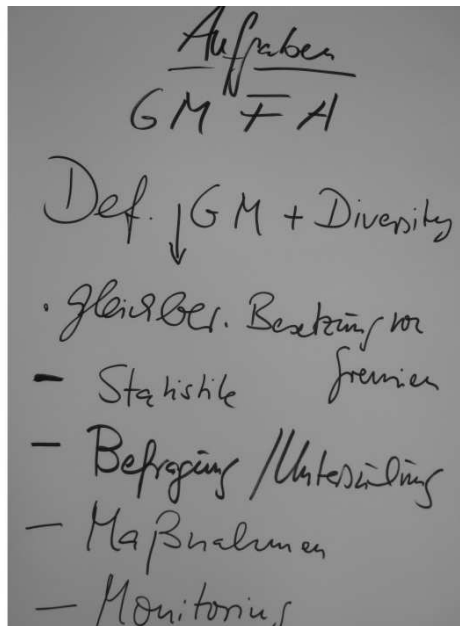 Aufgaben
GM FA
Def. ↓ GM + Diversity
· gleichber. Besetzung von
Gremien
- Statistik
- Befragung / Untersuchung
- Maßnahmen
- Monitoring